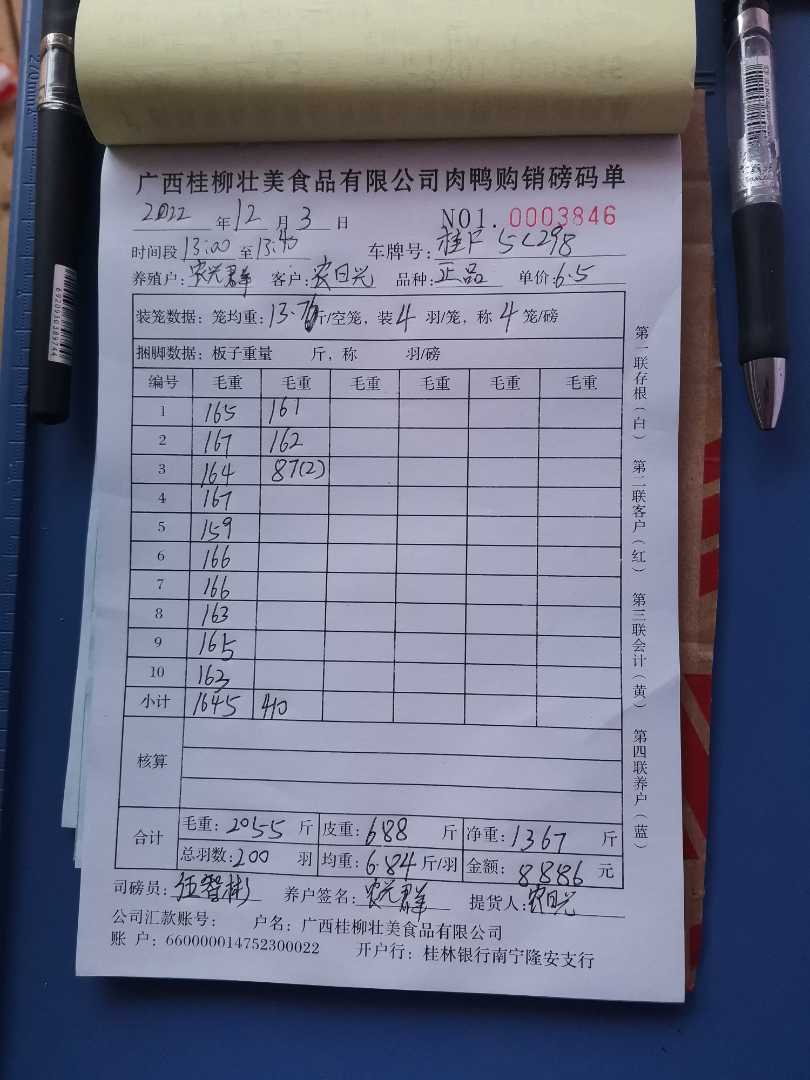 广西桂柳壮美食品有限公司肉鸭购销磅码单
2022年12月3日 NO1.0003846
时间段13:00至13:40 车牌号:桂F 5L298
养殖户:农兴群 客户:农日兴 品种:正品 单价:6.5
装笼数据:笼均重:13.76斤/空笼,装4羽/笼,称4笼/磅
捆脚数据:板子重量 斤,称 羽/磅
编号 毛重 毛重 毛重 毛重 毛重 毛重
1 165 161
2 167 162
3 164 87(2)
4 167
5 159
6 166
7 166
8 163
9 165
10 163
小计 1645 410
核算
合计 毛重:2055斤 皮重:688斤 净重:1367斤
总羽数:200羽 均重:6.84斤/羽 金额:8886元
司磅员:伍智彬 养户签名:农兴群 提货人:农日兴
公司汇款账号: 户名:广西桂柳壮美食品有限公司
账 户:660000014752300022 开户行:桂林银行南宁隆安支行
第一联存根(白) 第二联客户(红) 第三联会计(黄) 第四联养户(蓝)
6920910389744